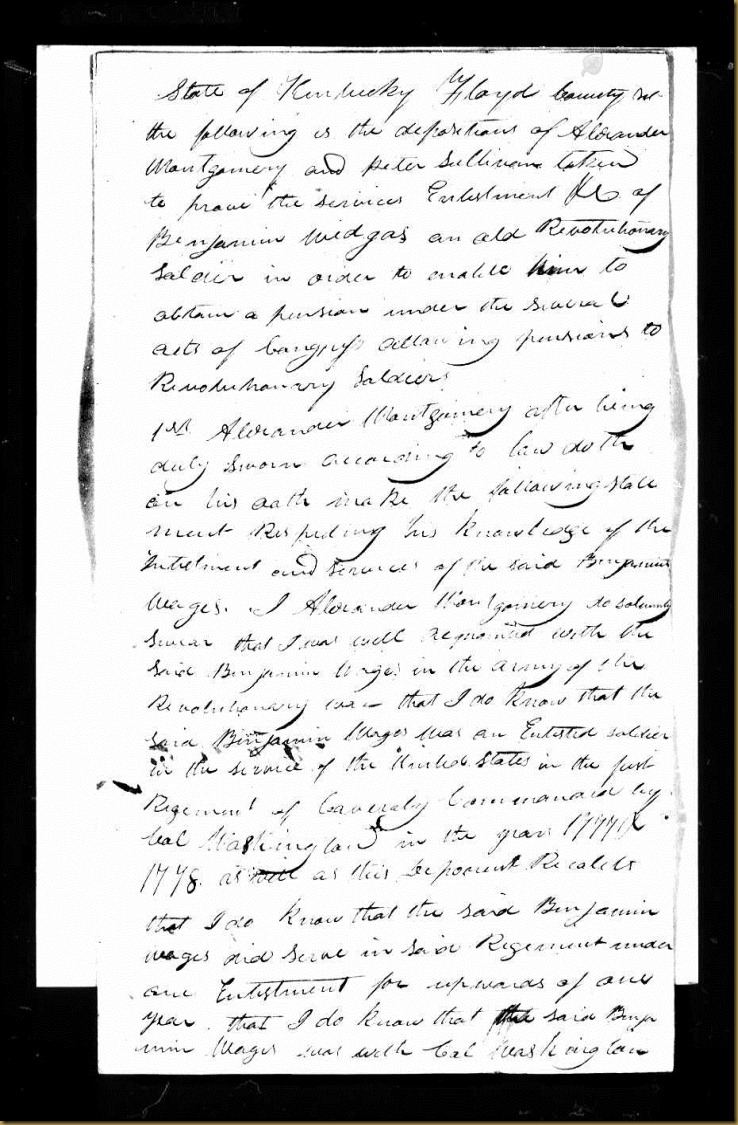 State of Kentucky Floyd County Sct
the following is the depositions of Alexander
Montgomery and peter Sullivan taken
to prove the services Enlistment &c of
Benjamin Wedgas an old Revolutionary
Soldier in order to enable him to
obtain a pension under the several
acts of Congress allowing pensions to
Revolutionary Soldiers
1st Alexander Montgomery after being
duly sworn according to law doth
on his oath make the following state
ment Respecting his knowledge of the
Intistment and services of the said Benjamin
Wages. I Alexander Montgomery do solemnly
swear that I was well aquainted with the
said Benjamin Wages in the army of the
Revolutionary war that I do know that the
said Benjamin Wages was an Entisted soldier
in the service of the United States in the first
Regement of Caveraly Commanded by
Col Washington in the years 1777 &
1778 as well as this Deponent Recalects
that I do know that the said Benjamin
Wages did serve in said Regement under
one Entistment for upwards of one
year that I do know that the said Benja
min Wages was with Col Washington